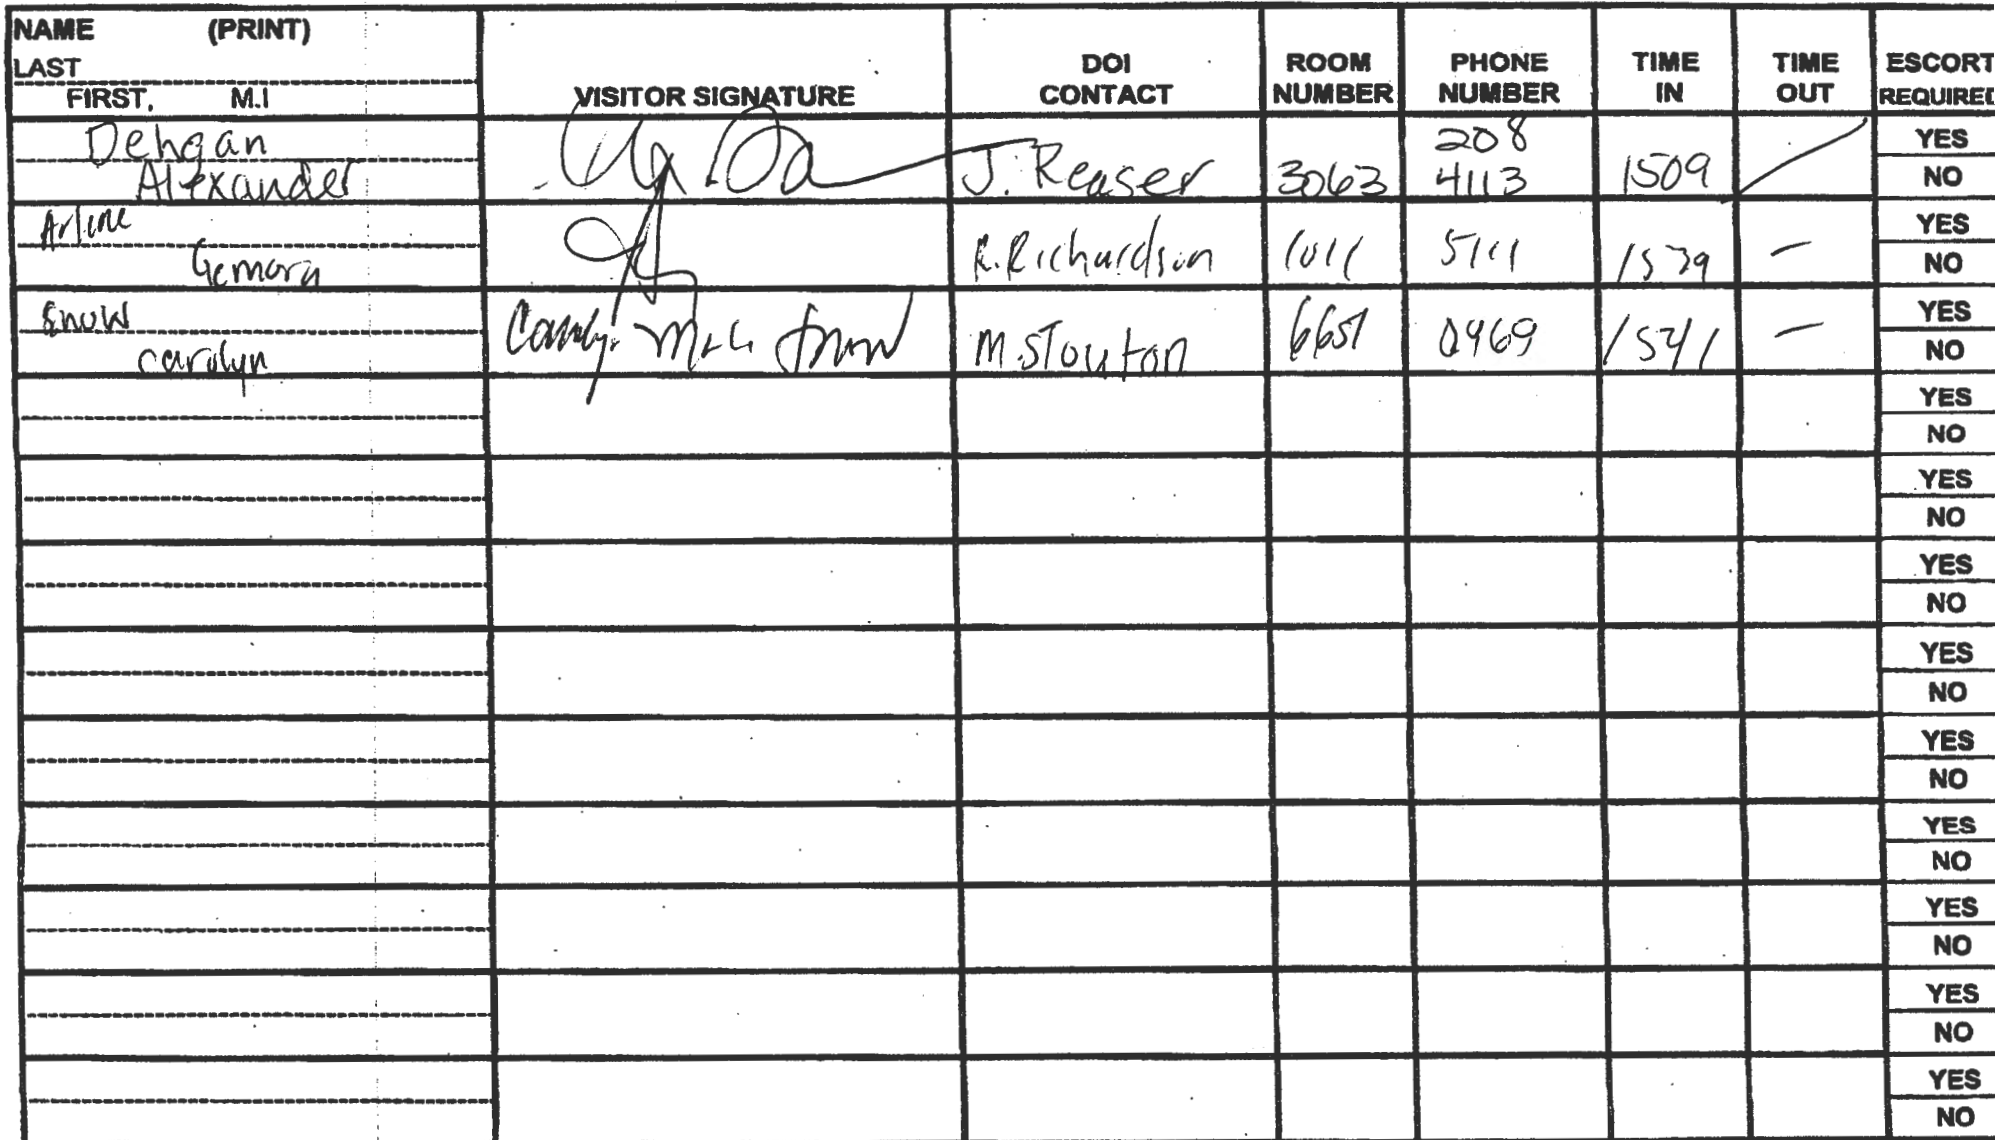 NAME (PRINT)
LAST
FIRST, M.I
VISITOR SIGNATURE
DOI CONTACT
ROOM NUMBER
PHONE NUMBER
TIME IN
TIME OUT
ESCORT REQUIRED
Dehgan
Alexander
J. Reaser
3063
208
4113
1509
YES
NO
Arline
Gemora
R. Richardson
1011
5111
1539
—
YES
NO
Snow
Carolyn
M. Stouton
6651
0969
1541
—
YES
NO
YES
NO
YES
NO
YES
NO
YES
NO
YES
NO
YES
NO
YES
NO
YES
NO
YES
NO